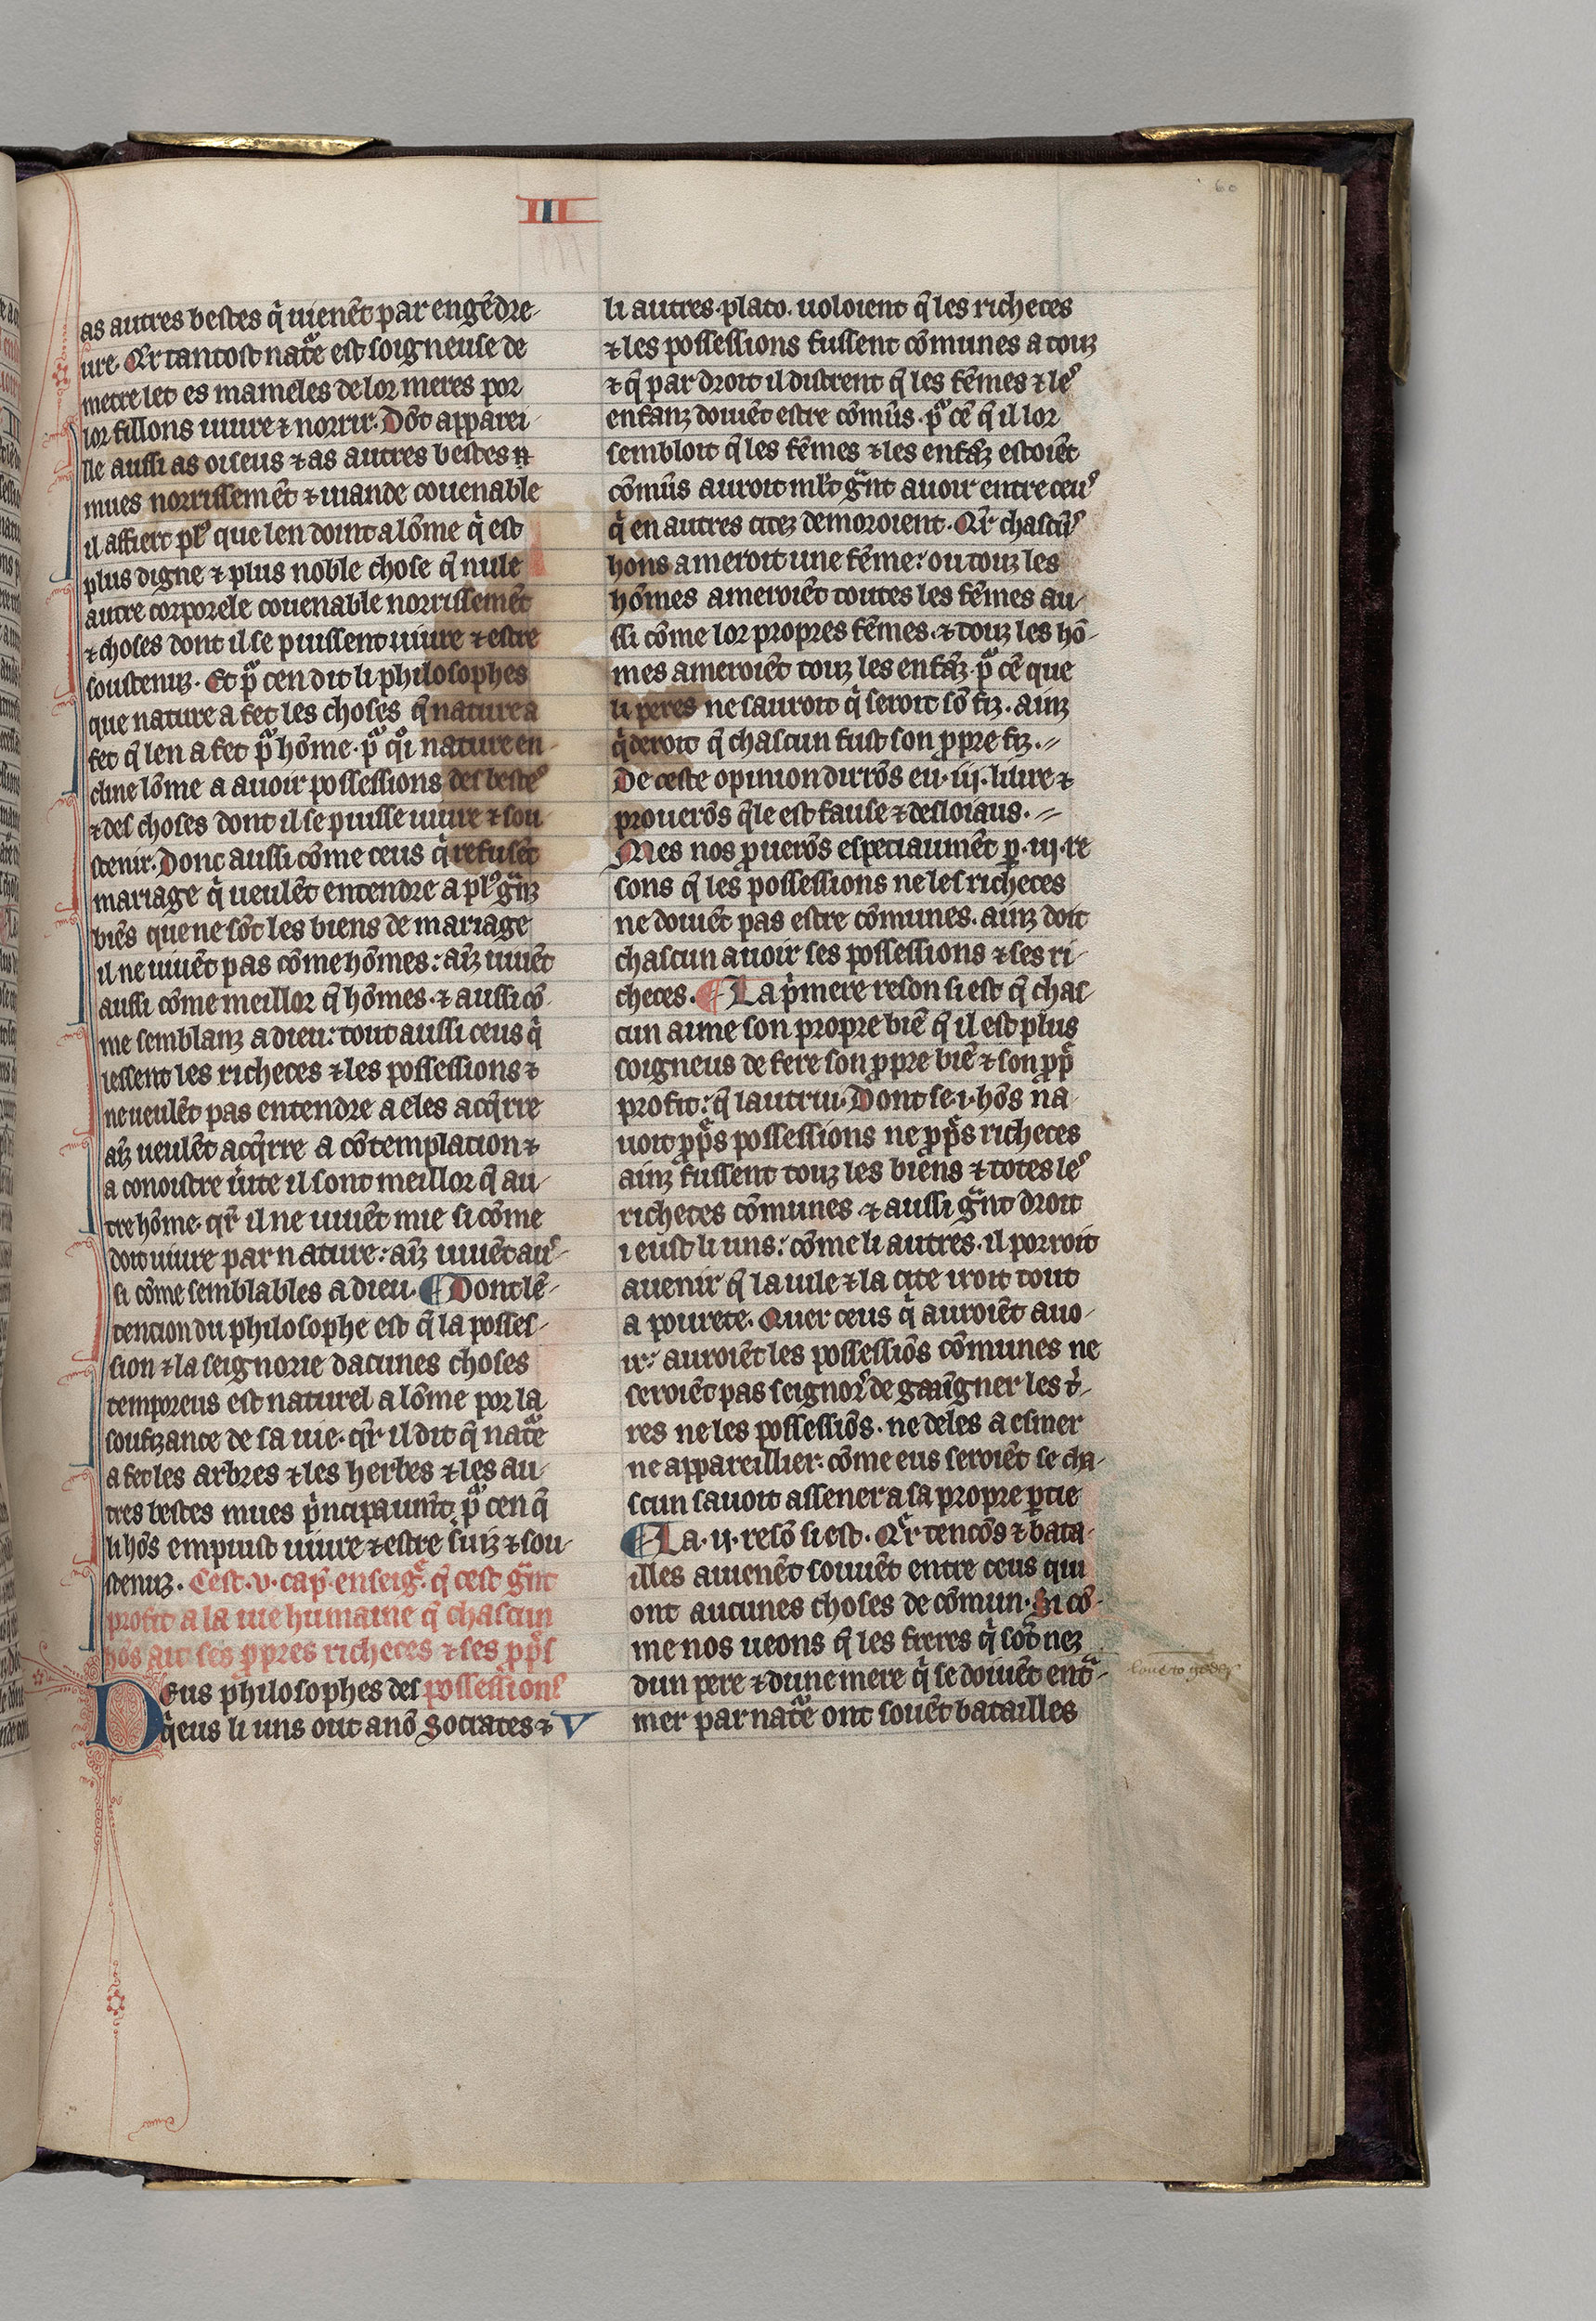 III
60
as autres bestes q̍ uienēt par engēdre-
ure. Qr̄ tantost nat̾e est soigneuse de
metre let es mameles de lor meres por
lor fillons uiure ⁊ norrir. Dōt apparei-
lle aussi as oiseus ⁊ as autres bestes
mues norrissemēt ⁊ uiande couenable
il affiert pl᾿ que len doint a lōme q̍ est
plus digne ⁊ plus noble chose q̄ nule
autre corporele couenable norrissemēt
⁊ choses dont il se puissent uiure ⁊ estre
soustenuz. Et pͣ cen dit li philosophes
que nature a fet les choses q̄ nature a
fet q̄ len a fet pͣ hōme. pͣ qͦi nature en-
cline lōme a auoir possessions des beste᾿
⁊ des choses dont il se puisse uiure ⁊ sou
stenir. Donc aussi cōme ceus q̍ refusēt
mariage q̍ ueulēt entendre a pl᾿ gͣnz
biēs que ne sōt les biens de mariage
il ne uiuēt pas cōme hōmes: aīz uiuēt
aussi cōme meillor q̄ hōmes. ⁊ aussi cō-
me semblanz a dieu: tout aussi ceus q̍
lessent les richeces ⁊ les possessions ⁊
ne ueulēt pas entendre a eles acq̄rre
aīz ueulēt acq̄rre a cōtemplacion ⁊
a conoistre u̍ite il sont meillor q̄ au-
tre hōme. qr̄ il ne uiuēt mie si cōme
doit uiure par nature: aīz uiuēt au᾿-
si cōme semblables a dieu. ¶ Dont lē-
tencion du philosophe est q̄ la posses-
sion ⁊ la seignorie dacunes choses
temporeus est naturel a lōme por la
soufizance de sa uie. qr̄ il dit q̄ nat̾e
a fet les arbres ⁊ les herbes ⁊ les au-
tres bestes mues p̍ncipaumt̄. pͣ cen q̄
li hōs em puist uiure ⁊ estre s̍uiz ⁊ sou-
stenuz. Cest .v. cap̄. enseig̾. q̄ cest gͣnt
profit a la uie humaine q̄ chascun
hōs ait ses ꝓpres richeces ⁊ ses ꝓp̄s
Deus philosophes des possessions
q̍eus li uns out anō Socrates ⁊ V
li autres. plato. uoloient q̄ les richeces
⁊ les possessions fussent cōmunes a touz
⁊ q̄ par droit il distrent q̄ les fēmes ⁊ le᾿
enfanz doiuēt estre cōmūs. pͣ cē q̄ il lor
sembloit q̄ les fēmes ⁊ les enfāz estoiēt
cōmūs auroit ml̄t gͣnt auoir entre ceu᾿
q̍ en autres citez demoroient. Qr̄ chascū᾿
hons ameroit une fēme: ou touz les
hōmes ameroiēt toutes les fēmes au-
ssi cōme lor propres fēmes. ⁊ touz les hō-
mes ameroiēt touz les enfāz. pͣ cē que
li peres ne sauroit q̍ seroit sō fiz. ainz
q̍deroit q̄ chascun fust son ꝓpre fiz.
De ceste opinion dirrōs eu .iij. liure ⁊
prouerōs q̄le est fause ⁊ desloiaus.
Mes nos ꝓuerōs especiaumēt ꝑ .iij. re
sons q̄ les possessions ne les richeces
ne doiuēt pas estre cōmunes. ainz doit
chascun auoir ses possessions ⁊ ses ri-
checes. ¶ La p̍mere reson si est q̄ chas-
cun aime son propre biē q̄ il est plus
coigneus de fere son ꝓpre biē ⁊ son ꝓp̄
profit: q̄ lautrui. Dont se .i. hōs na-
uoit ꝓp̄s possessions ne ꝓp̄s richeces
ainz fussent touz les biens ⁊ totes le᾿
richeces cōmunes ⁊ aussi gͣnt droit
i eust li uns: cōme li autres. il porroit
auenir q̄ la uile ⁊ la cite iroit tout
a pourete. Quer ceus q̍ auroiēt auo-
ir: auroiēt les possessiōs cōmunes ne
seroiēt pas seignor᾿ de gaaigner les t̍-
res ne les possessiōs. ne deles a esmer
ne appareillier. cōme eus seroiēt se cha-
scun sauoit assener a sa propre ꝑtie
¶ La .ii. resō si est. Qr̄ tencōs ⁊ bata-
illes auienēt souuēt entre ceus qui
ont aucunes choses de cōmun. Si cō-
me nos ueons q̄ les freres q̍ sōt nez
dun pere ⁊ dune mere q̍ se doiuēt entͣ-
mer par nat̾e ont souēt batailles